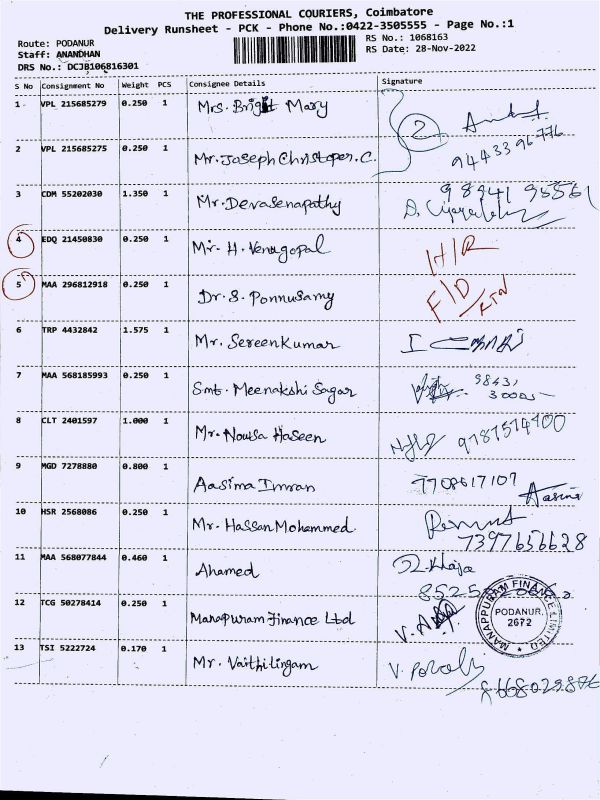 THE PROFESSIONAL COURIERS, Coimbatore
Delivery Runsheet - PCK - Phone No.:0422-3505555 - Page No.:1
Route: PODANUR
RS No.: 1068163
Staff: ANANDHAN
RS Date: 28-Nov-2022
DRS No.: DCJB106816301
S No Consignment No Weight PCS Consignee Details Signature
1 VPL 215685279 0.250 1 Mrs. Brigit Mary
2
2 VPL 215685275 0.250 1 Mr. Joseph Christoper. C. 9443396776
3 CDM 55202030 1.350 1 Mr. Devasenapathy 98941 95561
4 EDQ 21450830 0.250 1 Mr. H. Venugopal H/R
5 MAA 296812918 0.250 1 Dr. S. Ponnusamy F/D RTN
6 TRP 4432842 1.575 1 Mr. Sereenkumar
7 MAA 568185993 0.250 1 Smt. Meenakshi Sagar 98431
8 CLT 2401597 1.000 1 Mr. Nowsa Haseen
9 MGD 7278880 0.800 1 Aasima Imran 7708617107 Aasima
10 HSR 2568086 0.250 1 Mr. Hassan Mohammed 7397656628
11 MAA 568077844 0.460 1 Ahamed Khaja
12 TCG 50278414 0.250 1 Manapuram Finance Ltd
MANAPPURAM FINANCE LIMITED
PODANUR.
2672
13 TSI 5222724 0.170 1 Mr. Vaithilingam
8668029876